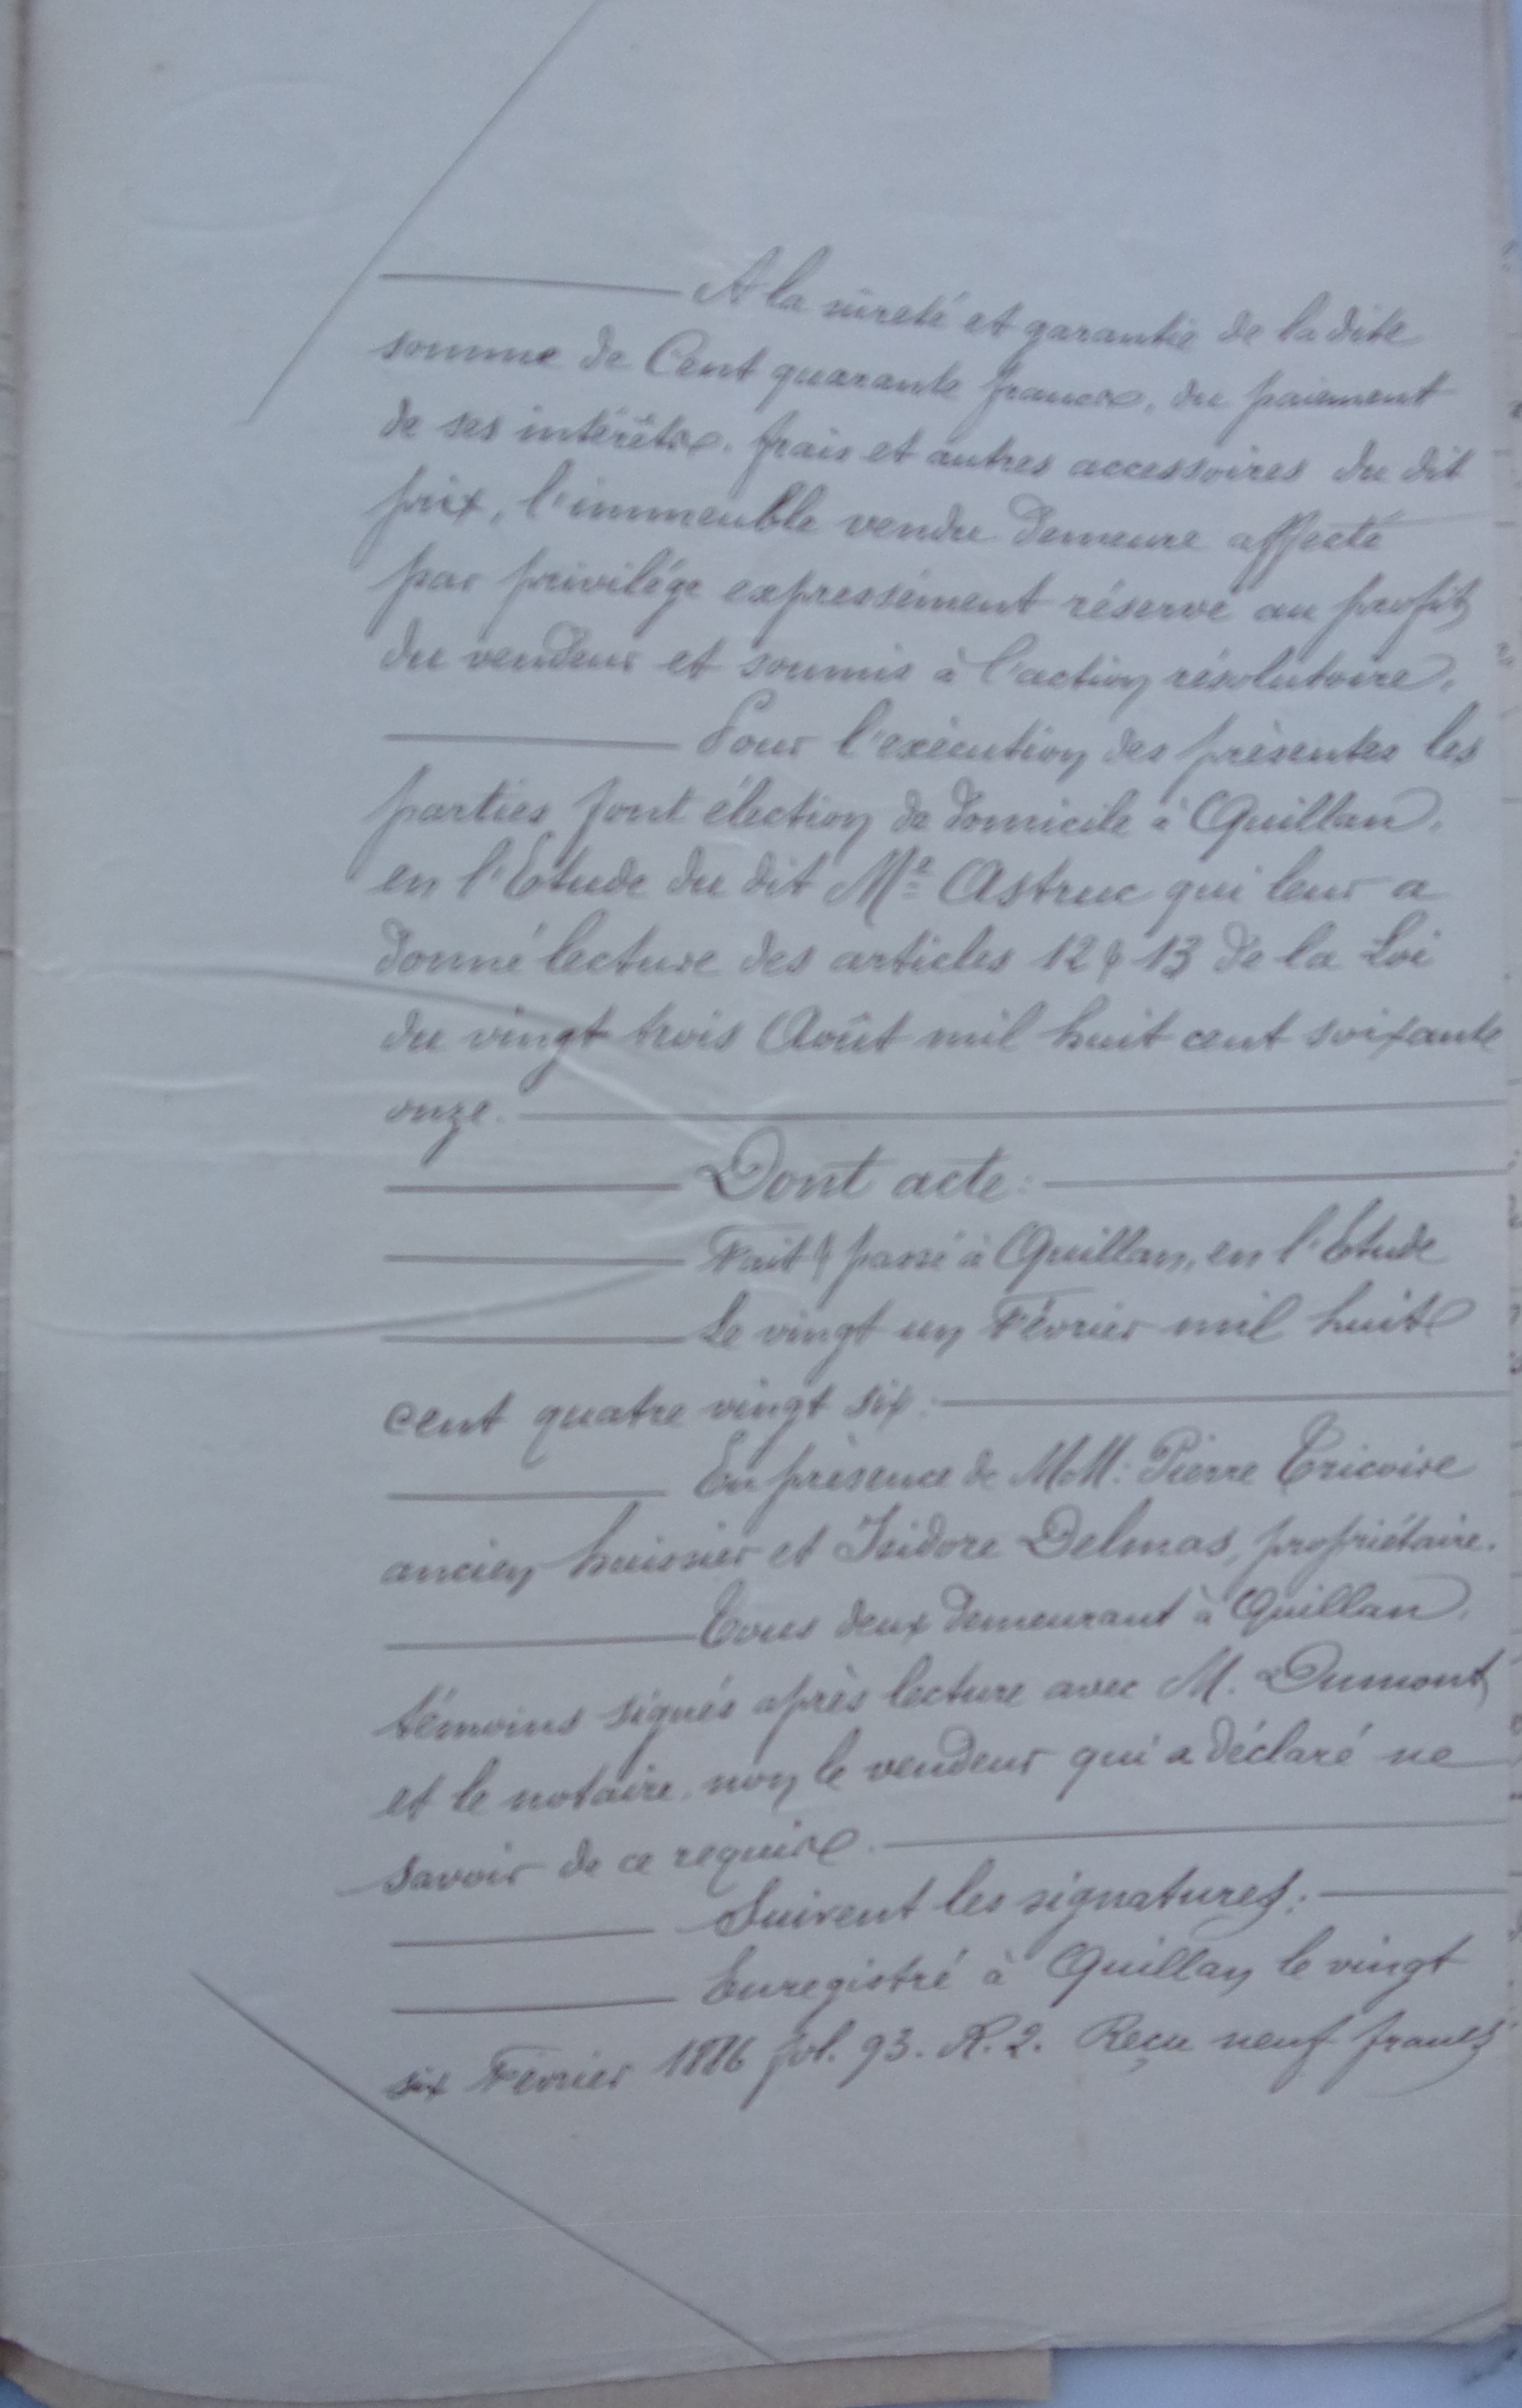 A la sûreté et garantie de la dite
somme de Cent quarante francs, du paiement
de ses intérêts, frais et autres accessoires du dit
prix, l'immeuble vendu demeure affecté
par privilége expressément réservé au profit
du vendeur et soumis à l'action résolutoire.
Pour l'exécution des présentes les
parties font élection de domicile à Quillan,
en l'Etude du dit Me Astruc qui leur a
donné lecture des articles 12 & 13 de la Loi
du vingt trois Août mil huit cent soixante
onze.
Dont acte:
Fait & passé à Quillan, en l'Etude
Le vingt un Février mil huit
cent quatre vingt six:
En présence de MM: Pierre Tricoire
ancien huissier et Isidore Delmas, propriétaire.
Tous deux demeurant à Quillan,
témoins signés après lecture avec M. Dumont
et le notaire, non le vendeur qui a déclaré ne
savoir de ce requis.
Suivent les signatures:
Enregistré à Quillan le vingt
six Février 1886 fol. 93. R. 2. Reçu neuf francs